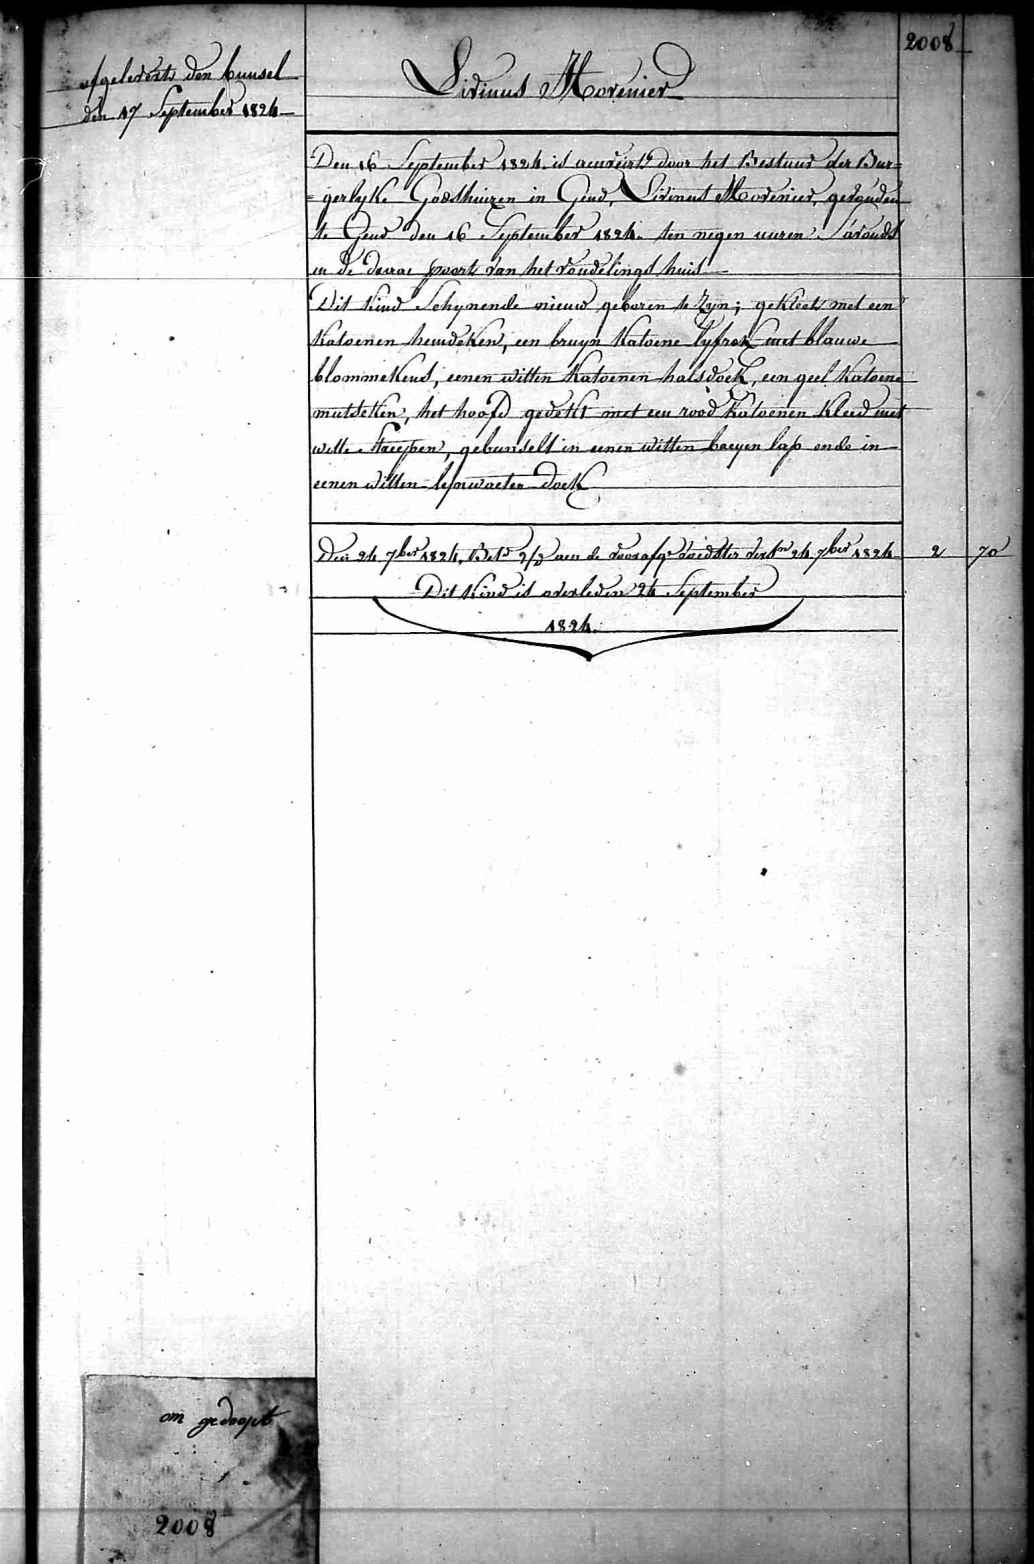 2008
afgeleverts den bunsel
den 17 September 1824
Livinus Morenier
Den 16 September 1824. is aenveirt door het Bestuur der Bur=
=gerlyke Godshuizen in Gend, Livinus Morenier, gevonden
te Gend den 16 September 1824. ten negen uuren S'avonds
in de draae poort van het vondelings huis
Dit kind Schynende nieuw geboren te Zyn; gekleet met een
katoenen hemdeken, een bruyn katoene lyfrok met blauwe
blommekens, eenen witten katoenen halsdoek, een geel katoene
mutseken, het hoofd gedekt met een rood katoenen kleed met
witte streepen, gebunselt in eenen witten baeyen lap ende in
eenen witten lynwaeten doek
Den 24 7ber 1824, Bet 2/3 aen de voorafge voedster 24 7ber 1824 2 70
Dit kind is overleden 24 September
1824.
on gedoopt
2008